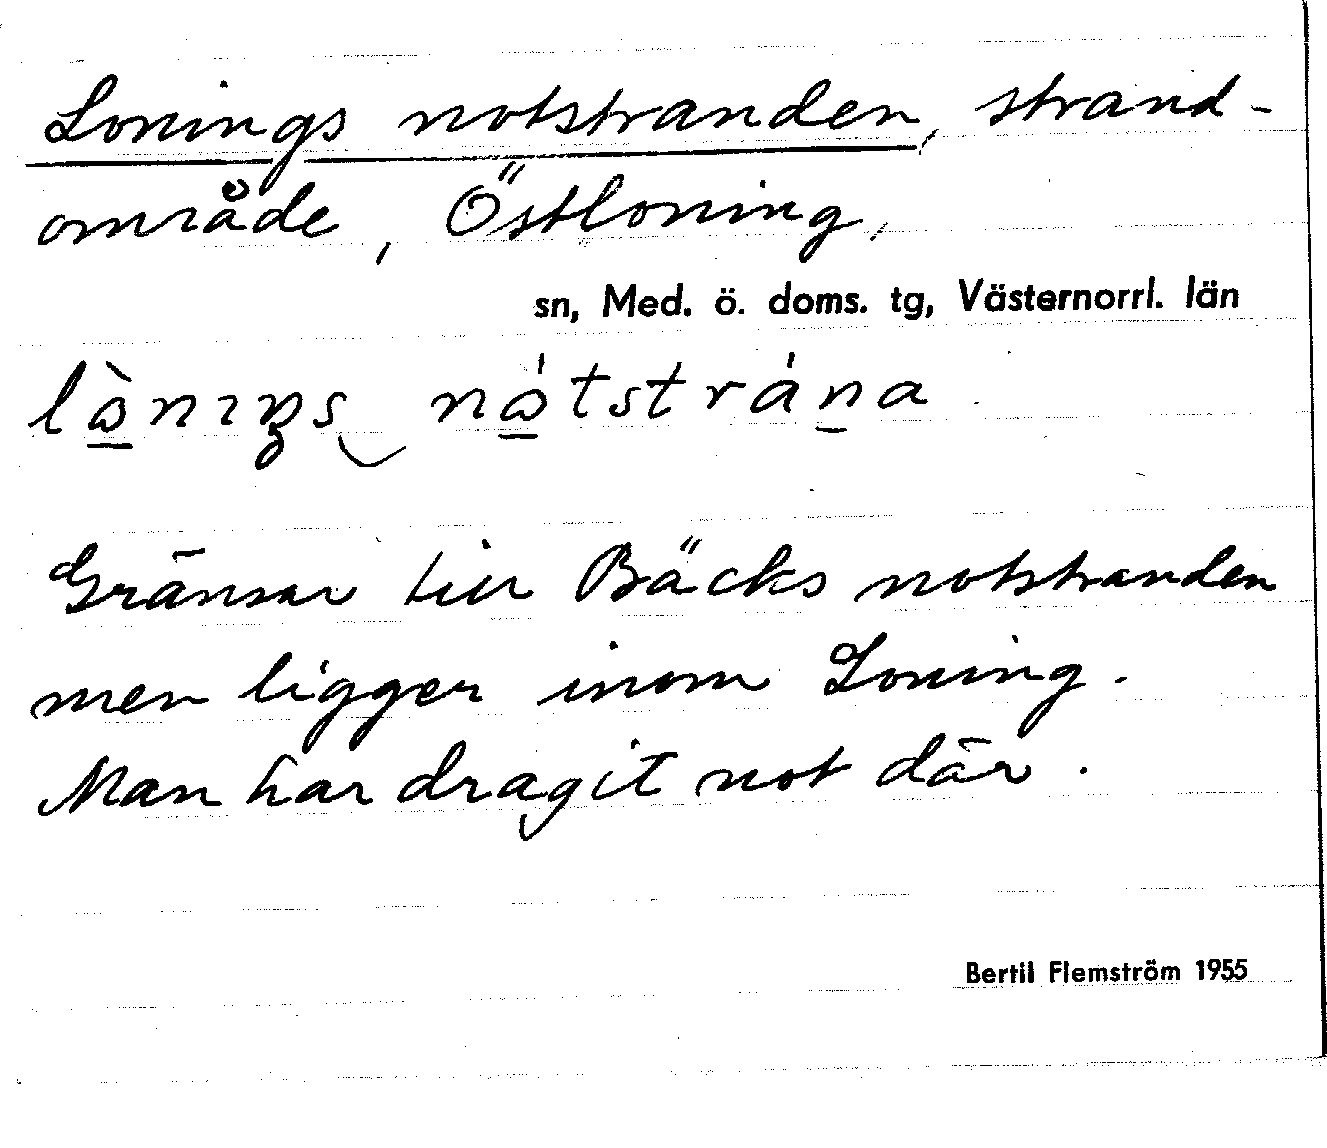 Lonings notstranden, strand-
område, Östloning,
sn, Med. ö. doms. tg, Västernorrl. län
Gränsar till Bäcks notstranden
men ligger inom Loning.
Man har dragit not där.
Bertil Flemström 1955